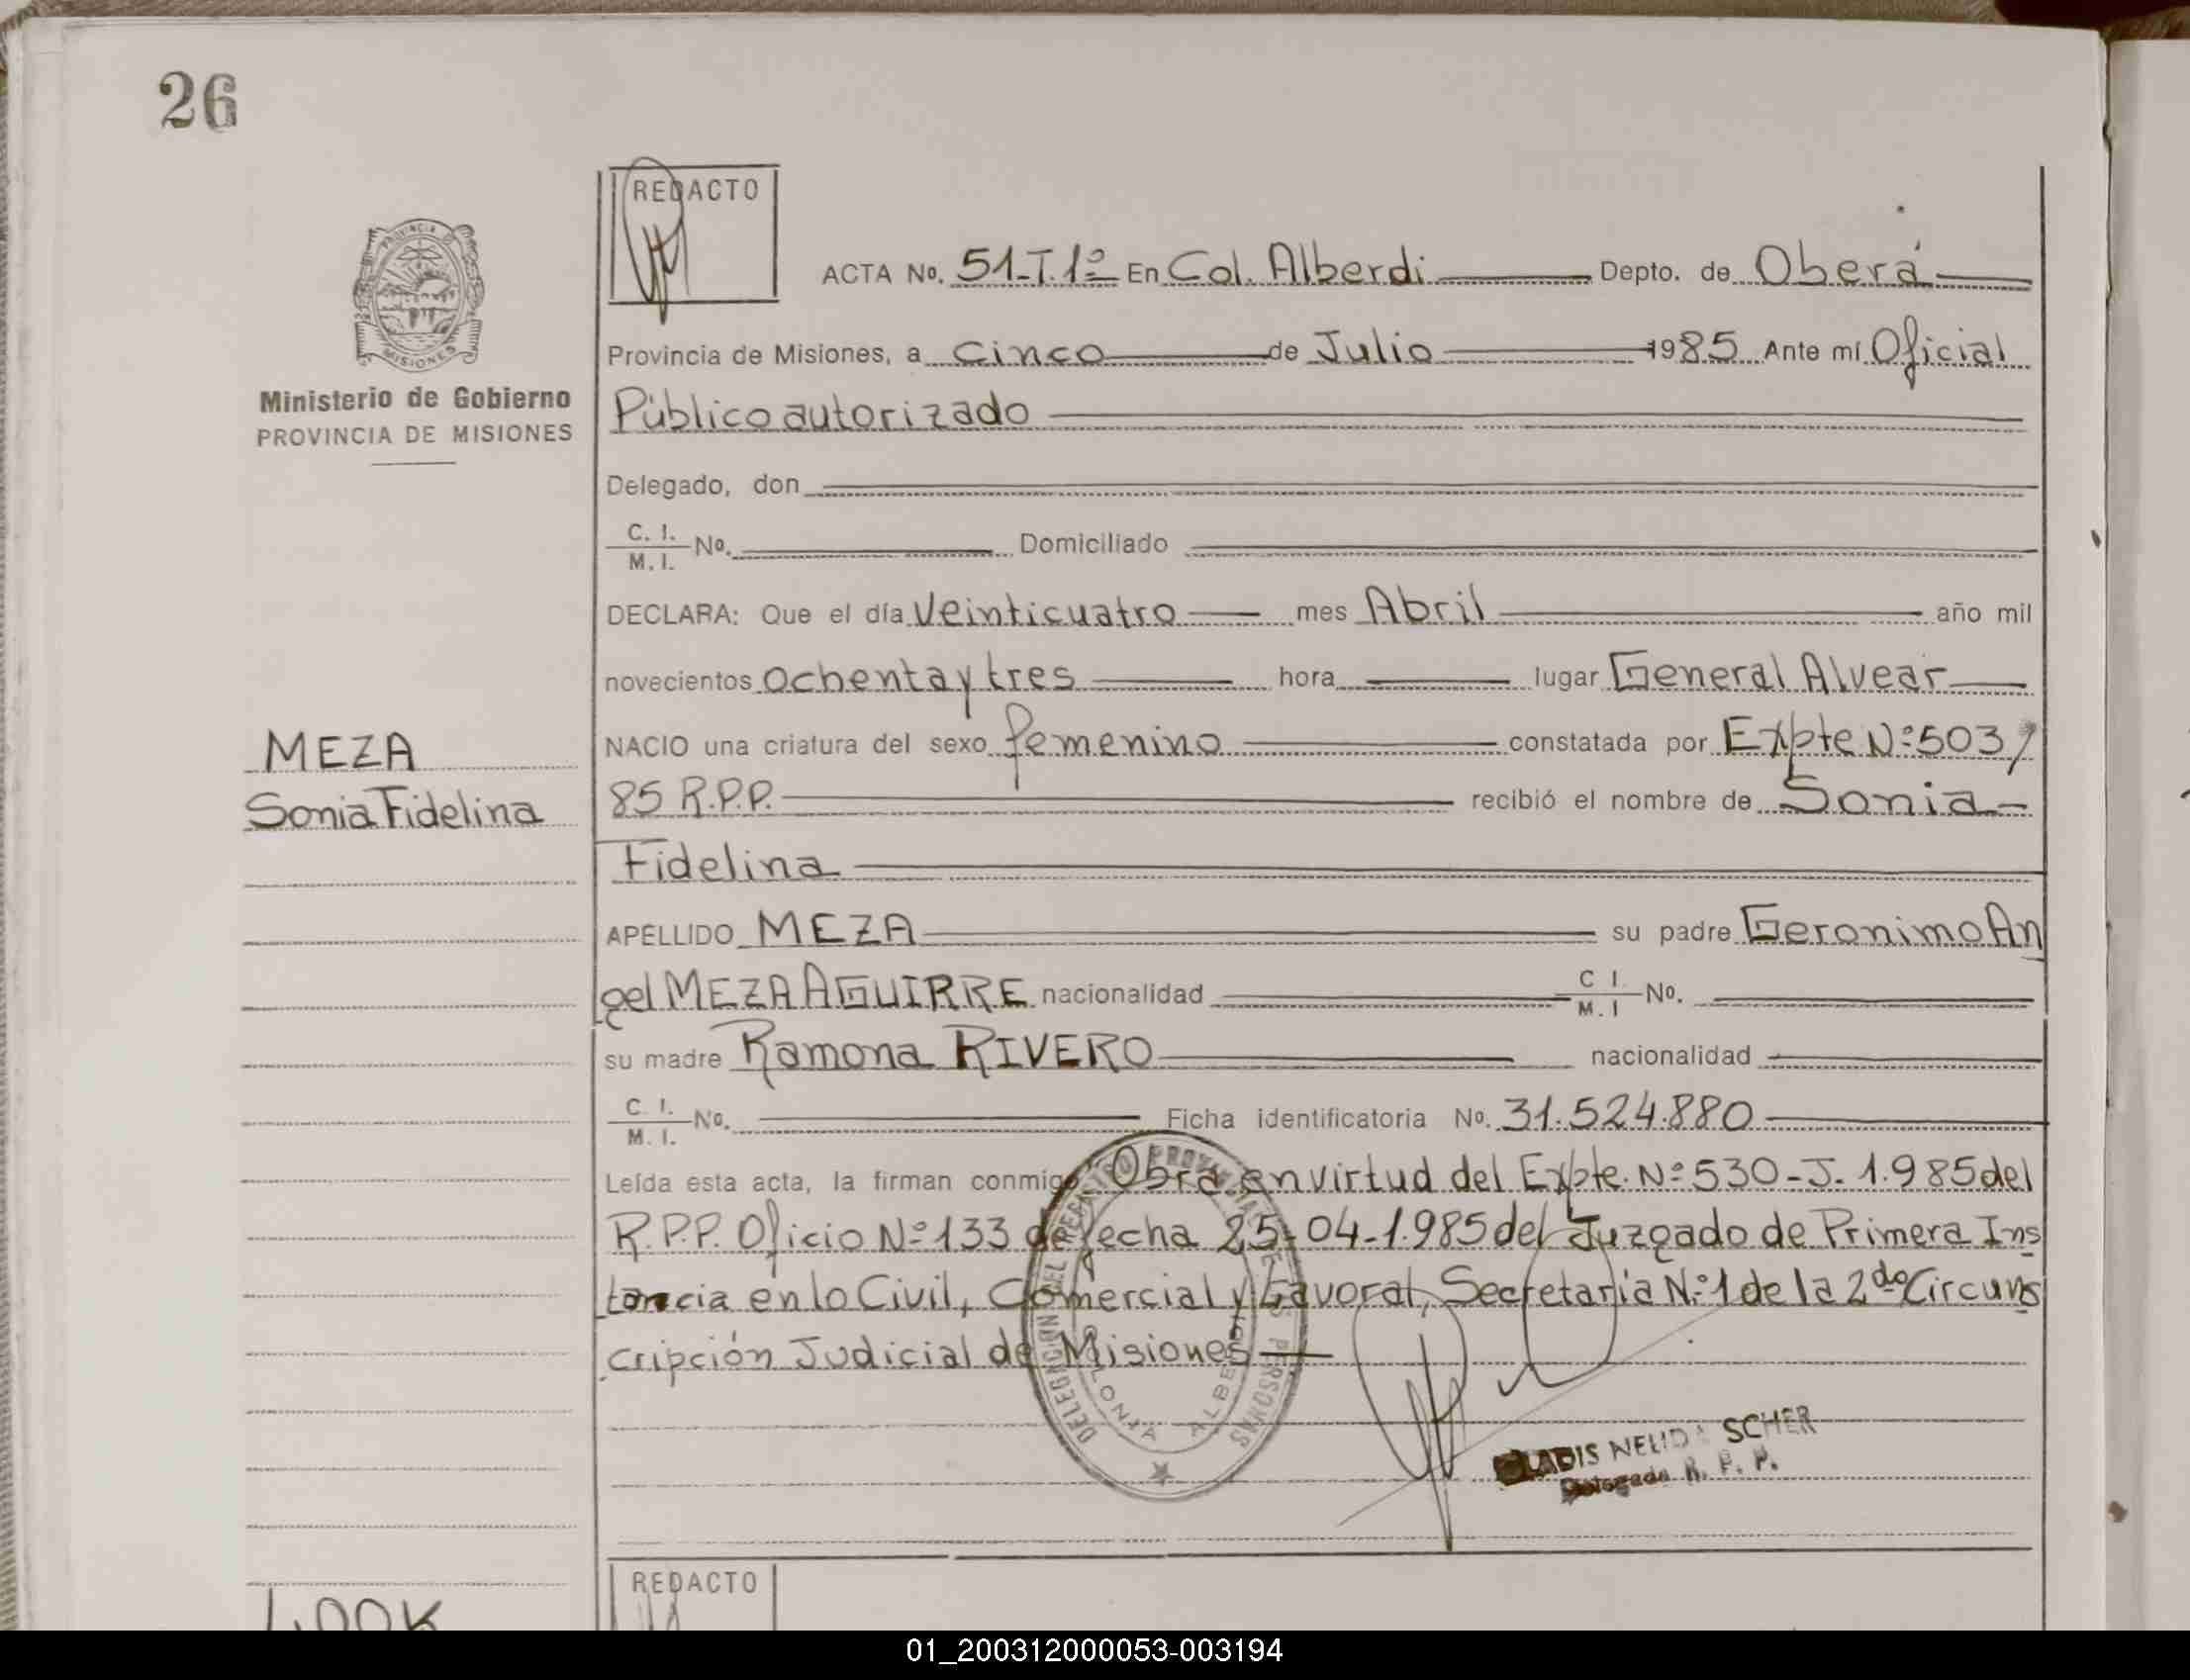 26
REDACTO
PROVINCIA DE
MISIONES
Ministerio de Gobierno
PROVINCIA DE MISIONES
ACTA No. 51-T.1º En Col. Alberdi Depto. de Oberá
Provincia de Misiones, a cinco de Julio 1985 Ante mí Oficial
Público autorizado
Delegado, don
C. I.
M. I. No. Domiciliado
DECLARA: Que el día Veinticuatro mes Abril año mil
novecientos ochenta y tres hora lugar General Alvear
NACIO una criatura del sexo femenino constatada por Expte Nº 503/
85 R.P.P. recibió el nombre de Sonia
Fidelina
MEZA
Sonia Fidelina
APELLIDO MEZA su padre Geronimo An
gel MEZA AGUIRRE nacionalidad C I M. I No.
su madre Ramona RIVERO nacionalidad
C. I.
M. I. No. Ficha identificatoria No. 31.524.880
Leída esta acta, la firman conmigo Obra en virtud del Expte. Nº 530-J-1.985 del
R.P.P. Oficio Nº 133 de fecha 25-04-1.985 del Juzgado de Primera Ins
tancia en lo Civil, Comercial y Lavoral, Secretaría Nº 1 de la 2do Circuns
cripción Judicial de Misiones
DELEGACIÓN DEL REGISTRO PROVINCIAL DE LAS PERSONAS
COLONIA ALBERDI
GLADIS NELIDA SCHER
Delegada R. P. P.
REDACTO
01_200312000053-003194